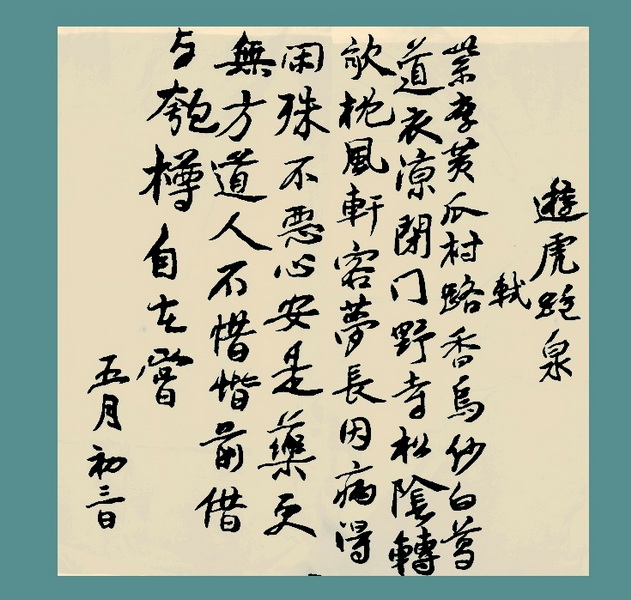 遊虎跑泉
軾
紫李黄瓜村路香烏紗白葛
道衣凉閉门野寺松陰轉
欹枕風軒客夢長因病得
閑殊不悪心安是藥更
無方道人不惜階前借
与匏樽自在嘗
五月初三日